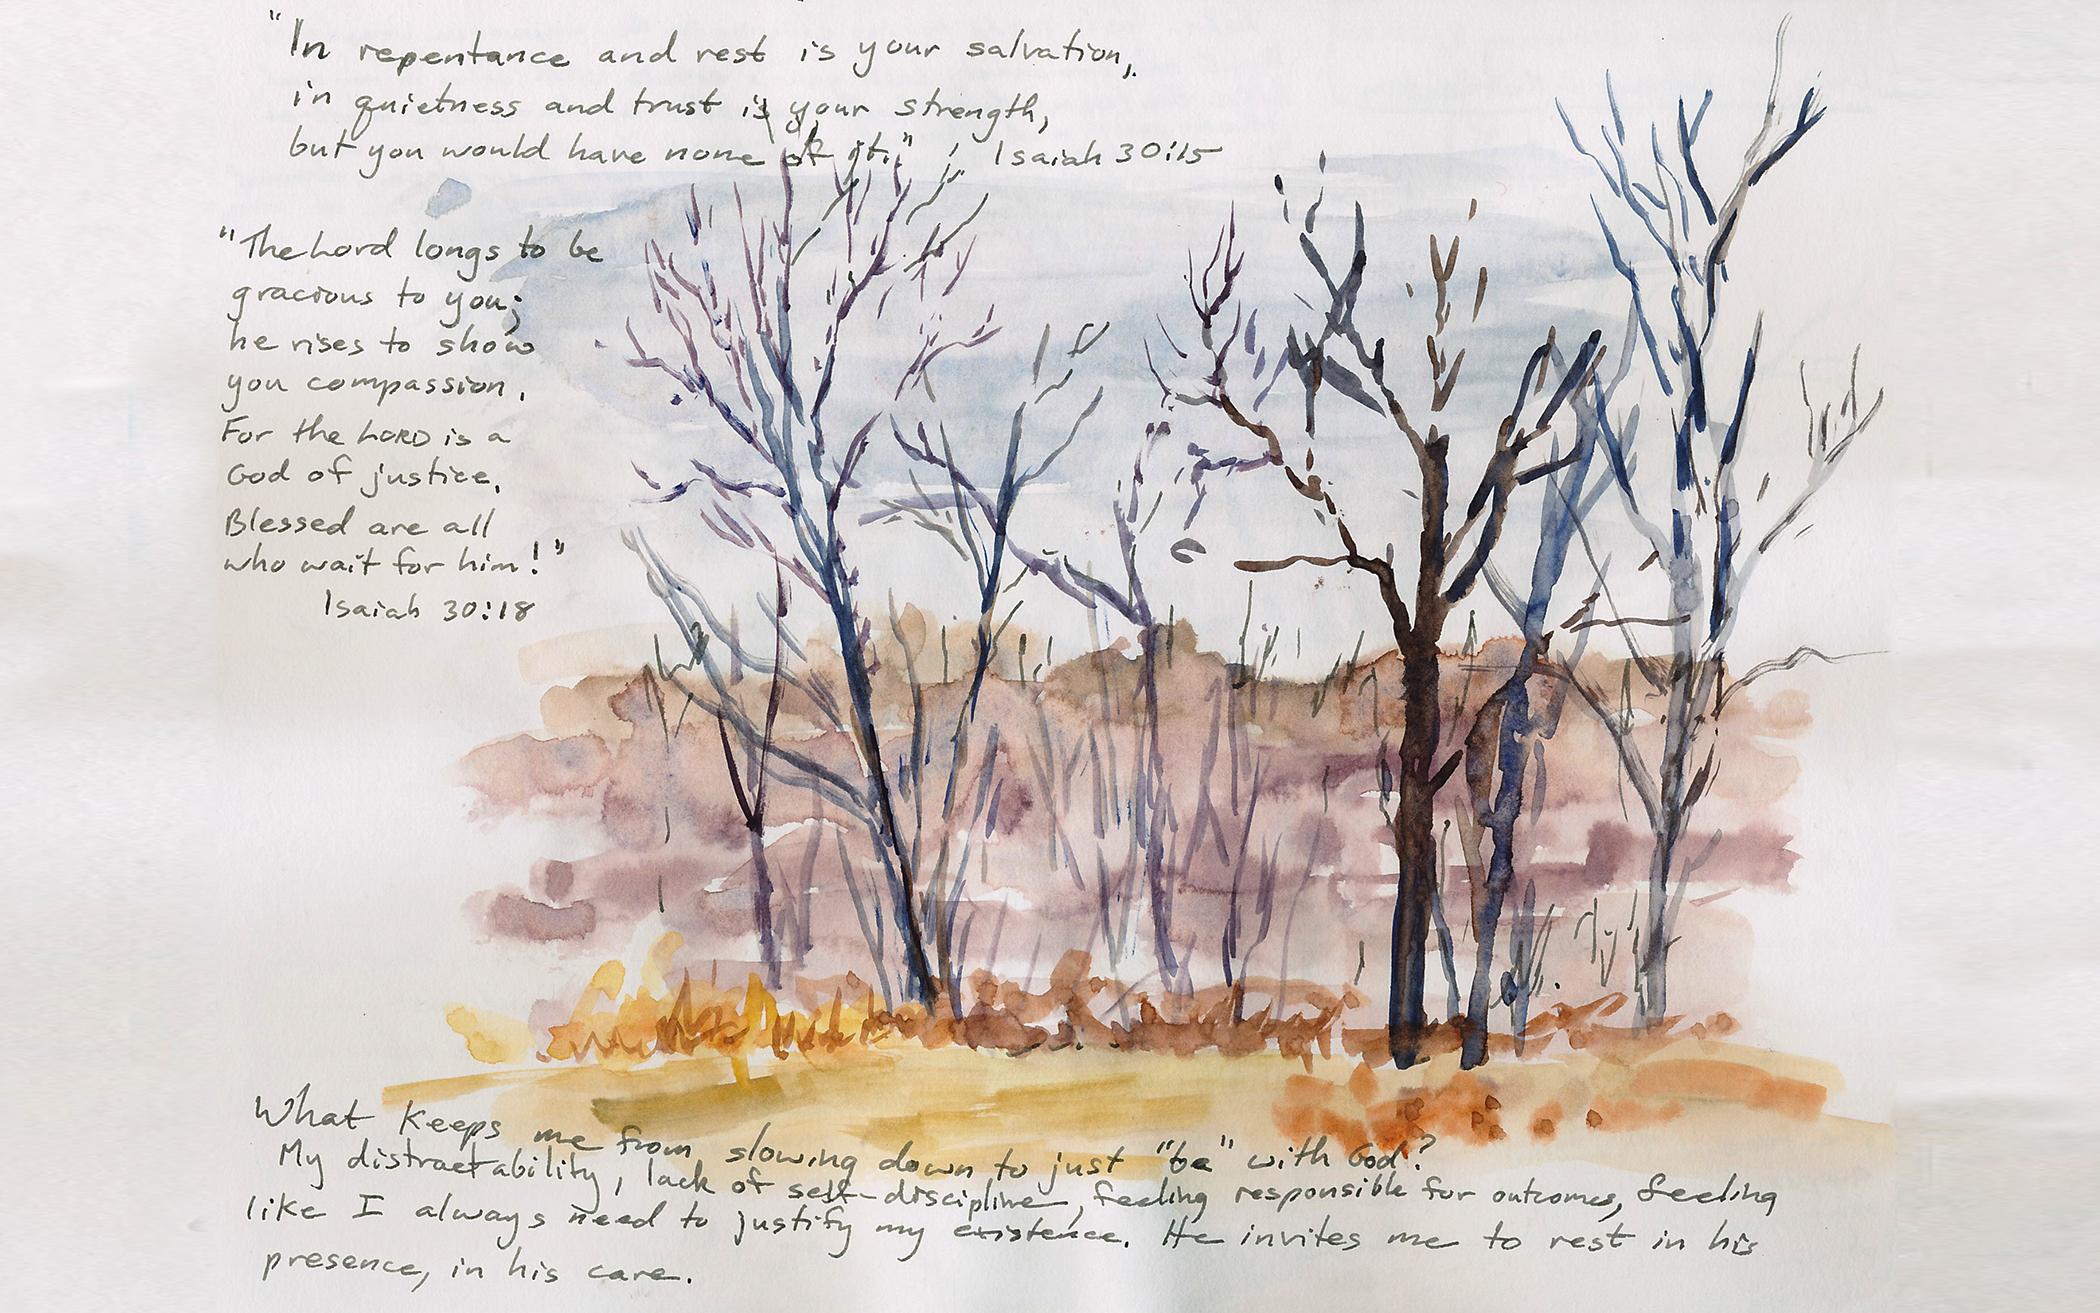 "In repentance and rest is your salvation,
in quietness and trust is your strength,
but you would have none of it." Isaiah 30:15
"The Lord longs to be
gracious to you;
he rises to show
you compassion.
For the LORD is a
God of justice.
Blessed are all
who wait for him!"
Isaiah 30:18
What keeps me from slowing down to just "be" with God?
My distractability, lack of self-discipline, feeling responsible for outcomes, feeling
like I always need to justify my existence. He invites me to rest in his
presence, in his care.